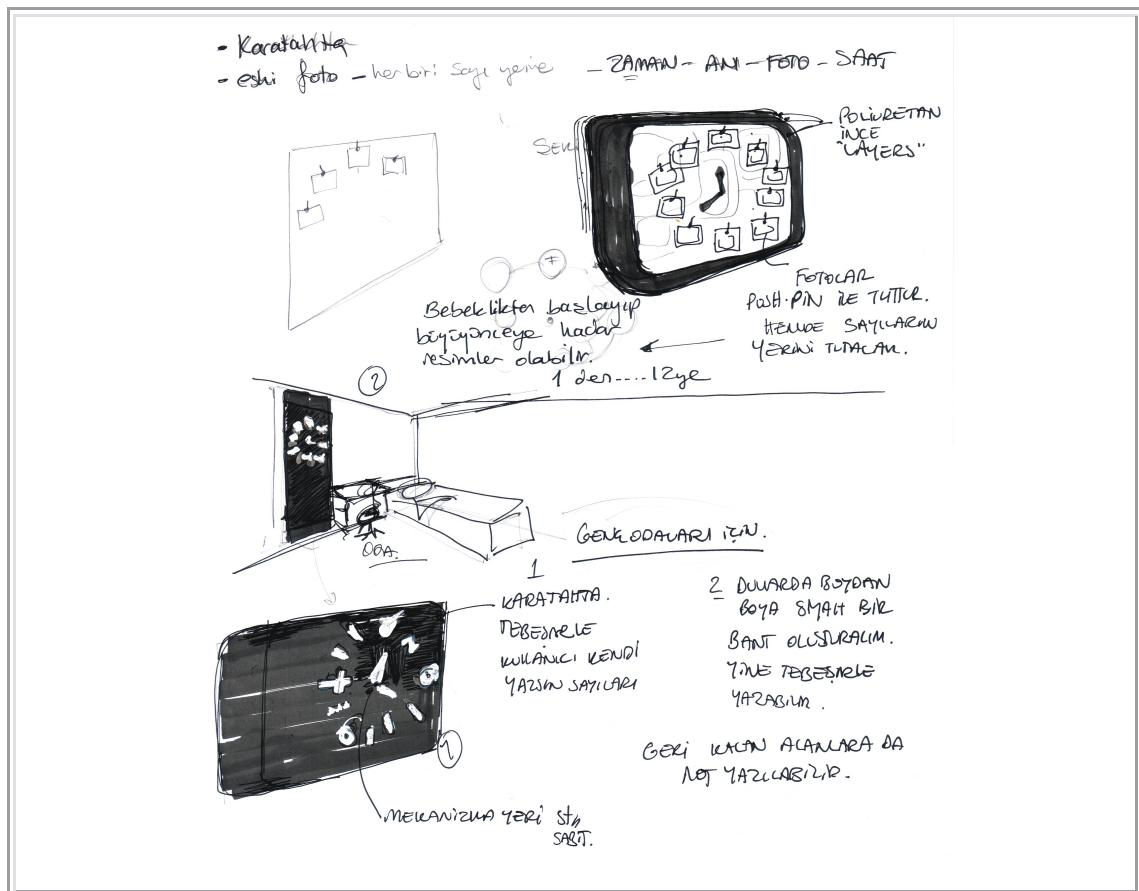 - Karatahta
- eski foto - her biri sayı yerine
- ZAMAN - ANI - FOTO - SAAT
POLİURETAN
İNCE
"LAYERS"
FOTOLAR
PUSH-PIN İLE TUTTUR.
HEMDE SAYILARIN
YERİNİ TUTACAK.
Bebeklikten başlayıp
büyüyünceye kadar
resimler olabilir.
1 den.....12ye
2
ODA.
GENÇ ODALARI İÇİN.
1
KARATAHTA.
TEBEŞİRLE
KULANICI KENDİ
YAZSIN SAYILARI
2 DUVARDA BOYDAN
BOYA SİYAH BİR
BANT OLUŞTURALIM.
YİNE TEBEŞİRLE
YAZABİLİR.
GERİ KALAN ALANLARA DA
NOT YAZILABİLİR.
1
MEKANİZMA YERİ
SABİT.